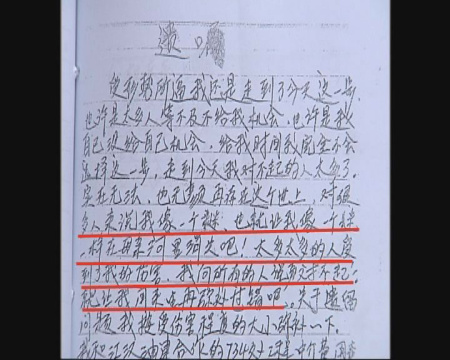 遗嘱
受形势所逼我还是走到了今天这一步,
也许是太多人等不及不给我机会,也许是我
自己没给自己机会,给我时间我完全不会
选择这一步,走到今天我对不起的人太多了,
实在无法,也无颜再存在这个世上,对很
多人来说我像一个谜,也就让我像一个谜
一样在母亲河里消失吧!太多太多的人受
到了我的伤害,我向所有的人说声对不起!
就让我用来生再弥补过错吧。关于遗留
问题,我按受伤害程度的大小弥补一下。